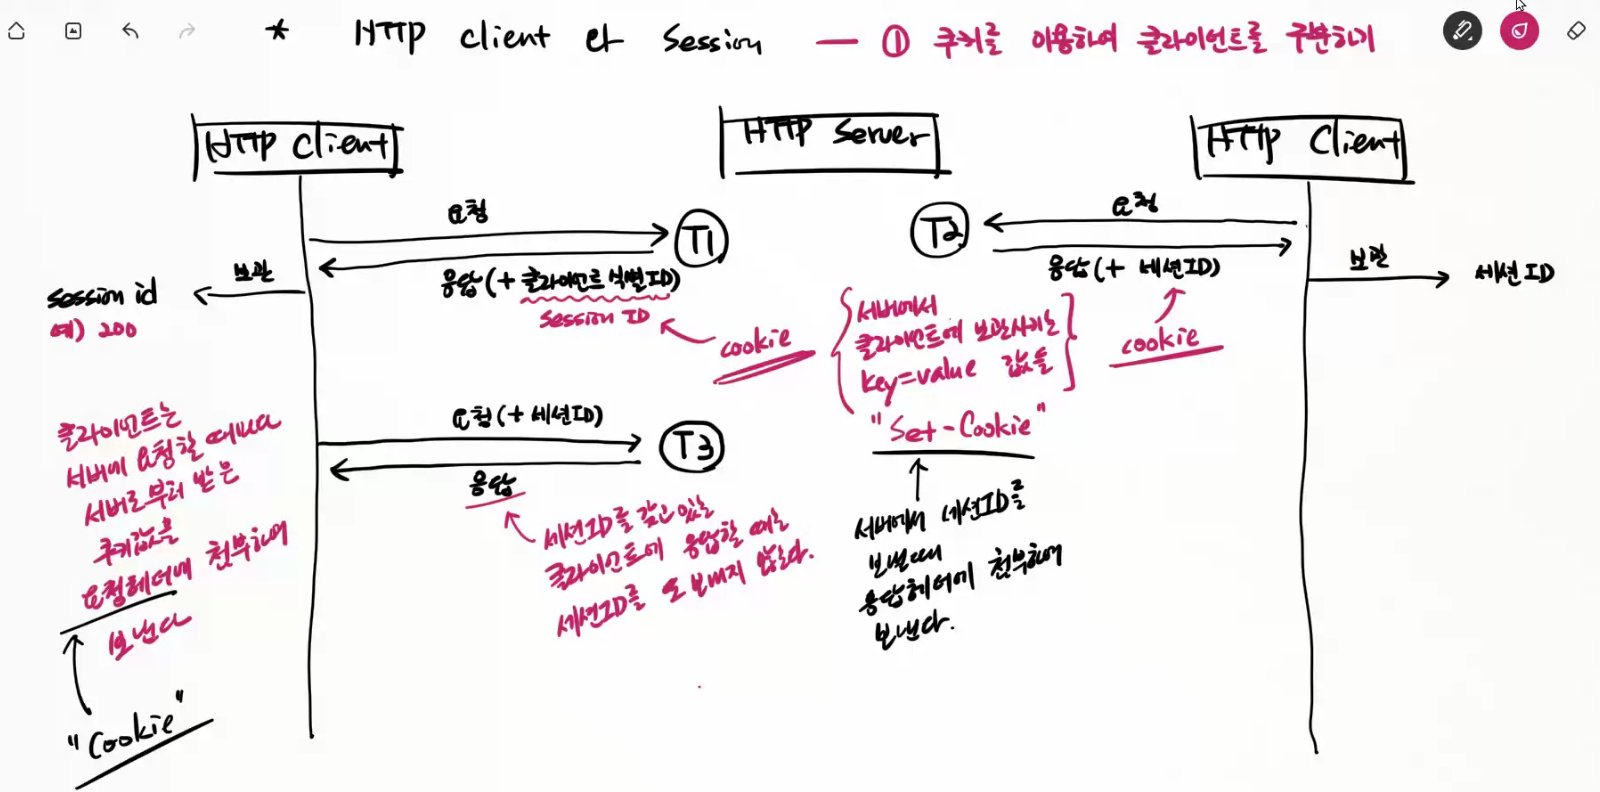 * HTTP client 와 Session — ① 쿠키를 이용하여 클라이언트를 구분하기
HTTP Client
HTTP Server
HTTP Client
요청
T1
T2
요청
응답(+ 클라이언트 식별ID)
session ID
응답(+ 세션ID)
보관
session id
예) 200
보관
세션ID
cookie
서버에서
클라이언트에 보관시키는
key=value 값들
"Set-Cookie"
cookie
요청(+ 세션ID)
T3
응답
클라이언트는
서버에 요청할 때마다
서버로부터 받은
쿠키값을
요청헤더에 첨부하여
보낸다
"Cookie"
세션ID를 갖고 있는
클라이언트에 응답할 때는
세션ID를 또 보내지 않는다.
서버에서 세션ID를
보낼때
응답헤더에 첨부하여
보낸다.